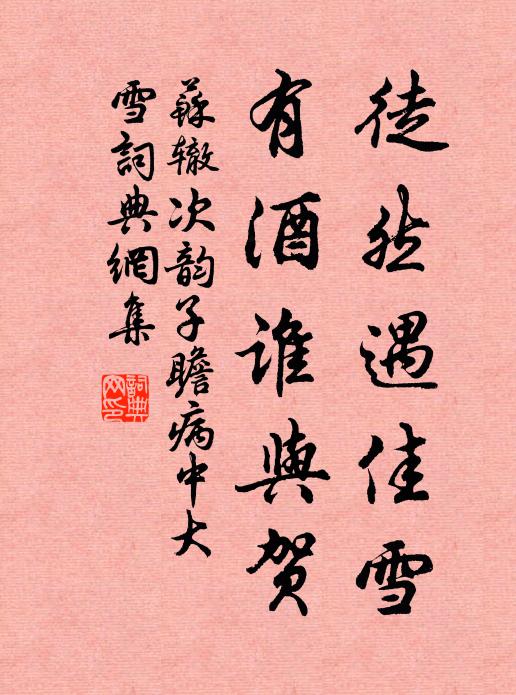 徒然遇佳雪
有酒誰與贺
蘇辙次韵子瞻病中大
雪詞典網集
詞典
网印